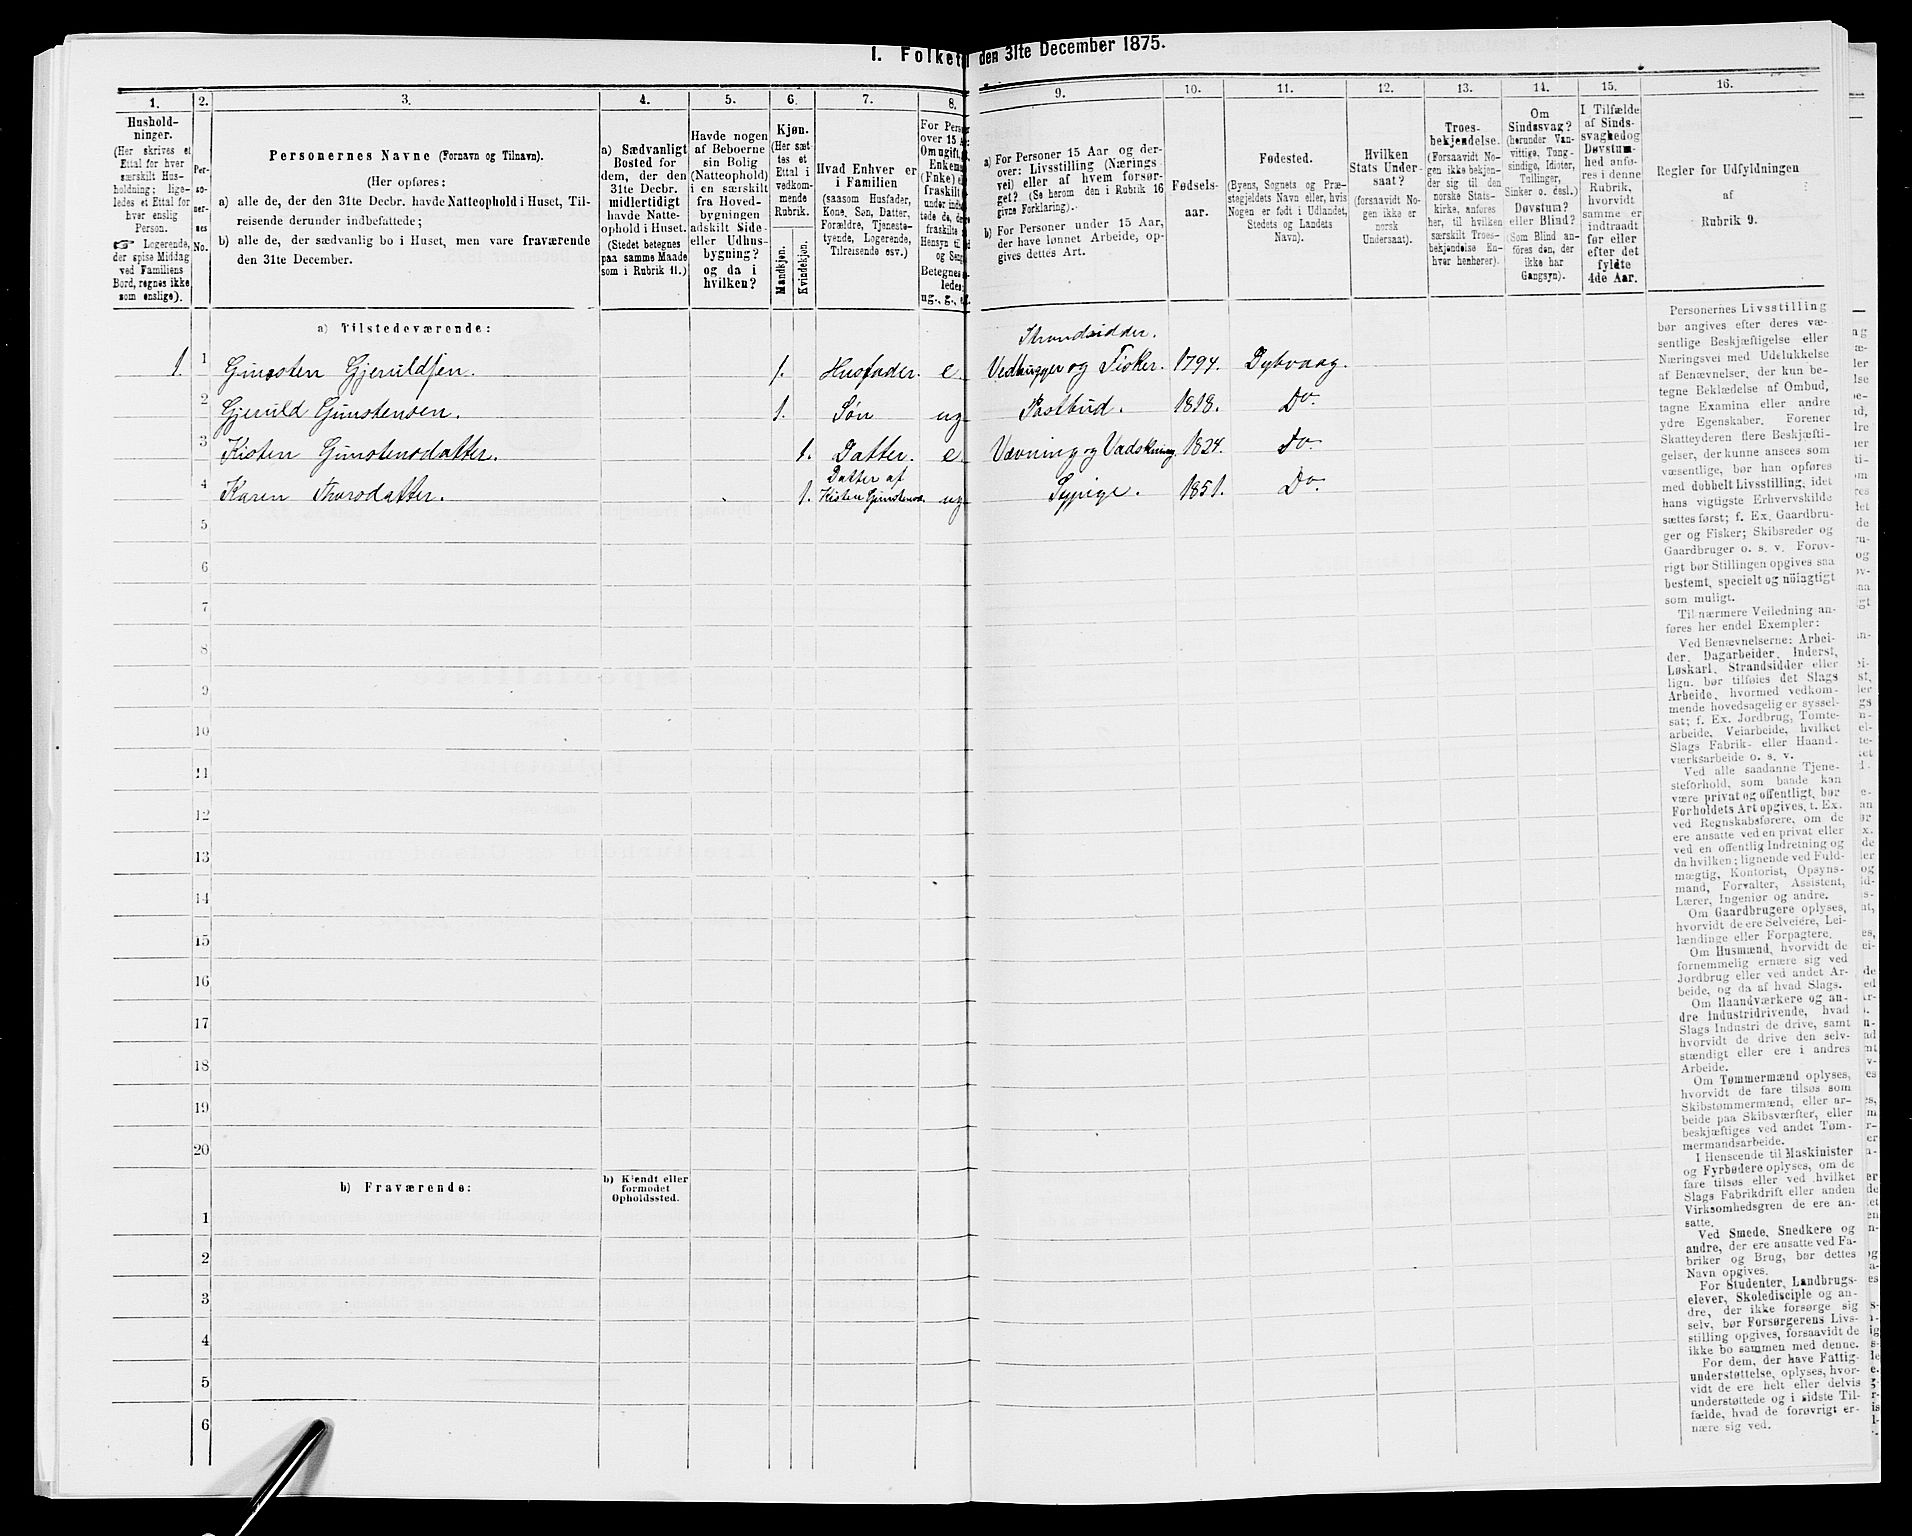 I. Folketal den 31te December 1875.
1.
Hushold-
ninger.
(Her skrives et
Ettal for hver
særskilt Hus-
holdning; lige-
ledes et Ettal for
hver enslig
Person.
☞ Logerende,
der spise Middag
ved Familiens
Bord, regnes ikke
som enslige).
2.
Per-
so-
ner-
nes
No.
3.
Personernes Navne (Fornavn og Tilnavn).
(Her opføres:
a) alle de, der den 31te Decbr. havde Natteophold i Huset, Til-
reisende derunder indbefattede;
b) alle de, der sædvanlig bo i Huset, men vare fraværende
den 31te December.
4.
a) Sædvanligt
Bosted for
dem, der den
31te Decbr.
midlertidigt
havde Natte-
ophold i Huset.
(Stedet betegnes
paa samme Maade
som i Rubrik 11.)
5.
Havde nogen
af Beboerne
sin Bolig
(Natteophold)
i en særskilt
fra Hoved-
bygningen
adskilt Side-
eller Udhus-
bygning?
og da i
hvilken?
6.
Kjøn.
(Her sæt-
tes et
Ettal i
vedkom-
mende
Rubrik.
Mandkjøn.
Kvindekjøn.
7.
Hvad Enhver er
i Familien
(saasom Husfader,
Kone, Søn, Datter,
Forældre, Tjeneste-
tyende, Logerende,
Tilreisende osv.)
8.
For Pers
over 15 A
Om ugift, g
Enkema
(Enke) e
fraskilt
under indb
tede de, de
fraskilte
Hensyn til
og Seng
Betegnes
ledes:
ug., g., e
9.
a) For Personer 15 Aar og der-
over: Livsstilling (Nærings-
vei) eller af hvem forsør-
get? (Se herom den i Rubrik 16
givne Forklaring).
b) For Personer under 15 Aar,
der have lønnet Arbeide, op-
gives dettes Art.
10.
Fødsels-
aar.
11.
Fødested.
(Byens, Sognets og Præ-
stegjeldets Navn eller, hvis
Nogen er født i Udlandet,
Stedets og Landets
Navn).
12.
Hvilken
Stats Under-
saat?
(forsaavidt No-
gen ikke er
norsk
Undersaat).
13.
Troes-
bekjendelse.
(Forsaavidt No-
gen ikke bekjen-
der sig til den
norske Stats-
kirke, anføres
her, til hvilken
særskilt Troes-
bekjendelse En-
hver henhører).
14.
Om
Sindssvag?
(herunder Van-
vittige, Tung-
sindige, Idioter,
Tullinger,
Sinker o. desl.)
Døvstum?
eller Blind?
(Som Blind an-
føres den, der
ikke har
Gangsyn).
15.
I Tilfælde
af Sinds-
svaghed og
Døvstum-
hed anfø-
res i denne
Rubrik,
hvorvidt
samme er
indtraadt
før eller
efter det
fyldte
4de Aar.
16.
Regler for Udfyldningen
af
Rubrik 9.
a) Tilstedeværende:
Strandsidder.
1. 1 Gunsten Gjeruldsen. 1. Husfader. e. Vedhugger og Fisker. 1794. Dybvaag.
2 Gjeruld Gunstensen. 1. Søn ug Postbud. 1818. Do.
3 Kisten Gunstensdatter. 1. Datter. e. Vævning og Vadskning 1824. Do.
Datter af
4 Karen Thorsdatter. 1. Kisten Gunstensd. ug Sypige. 1851. Do.
5
6
7
8
9
10
11
12
13
14
15
16
17
18
19
20
b) Fraværende:
b) Kjendt eller
formodet
Opholdssted.
1
2
3
4
5
6
Personernes Livsstilling
bør angives efter deres væ-
sentlige Beskjæftigelse eller
Næringsvei med Udelukkelse
af Benævnelser, der kun be-
tegne Beklædelse af Ombud,
tagne Examina eller andre
ydre Egenskaber. Forener
Skatteyderen flere Beskjæfti-
gelser, der kunne ansees som
væsentlige, bør han opføres
med dobbelt Livsstilling, idet
hans vigtigste Erhvervskilde
sættes først; f. Ex. Gaardbru-
ger og Fisker; Skibsreder og
Gaardbruger o. s. v. Forøv-
rigt bør Stillingen opgives saa
bestemt, specielt og nöiagtigt
som muligt.
Til nærmere Veiledning an-
føres her endel Exempler:
Ved Benævnelserne: Arbei-
der, Dagarbeider, Inderst,
Løskarl, Strandsidder eller
lign. bør tilføies det Slags
Arbeide, hvormed vedkom-
mende hovedsagelig er syssel-
sat; f. Ex. Jordbrug, Tomte-
arbeide, Veiarbeide, hvilket
Slags Fabrik- eller Haand-
værksarbeide o. s. v.
Ved alle saadanne Tjene-
steforhold, som baade kan
være privat og offentligt, bør
Forholdets Art opgives, t. Ex.
ved Regnskabsførere, om de
ere ansatte ved en privat eller
ved en offentlig Indretning og
da hvilken; lignende ved Fuld-
mægtig, Kontorist, Opsyns-
mand, Forvalter, Assistent,
Lærer, Ingeniør og andre.
Om Gaardbrugere oplyses,
hvorvidt de ere Selveiere, Lei-
lændinge eller Forpagtere.
Om Husmænd, hvorvidt de
fornemmelig ernære sig ved
Jordbrug eller ved andet Ar-
beide, og da af hvad Slags.
Om Haandværkere og an-
dre Industridrivende, hvad
Slags Industri de drive, samt
hvorvidt de drive den selv-
stændigt eller ere i andres
Arbeide.
Om Tømmermænd oplyses,
hvorvidt de fare tilsøs som
Skibstømmermænd, eller ar-
beide paa Skibsværfter, eller
beskjæftiges ved andet Tøm-
mermandsarbeide.
I Henseende til Maskinister
og Fyrbødere oplyses, om de
fare tilsøs eller ved hvilket
Slags Fabrikdrift eller anden
Virksomhedsgren de ere an-
satte.
Ved Smede, Snedkere og
andre, der ere ansatte ved Fa-
briker og Brug, bør dettes
Navn opgives.
For Studenter, Landbrugs-
elever, Skoledisciple og an-
dre, der ikke forsørge sig
selv, bør Forsørgerens Livs-
stilling opgives, forsaavidt de
ikke bo sammen med denne.
For dem, der have Fattig-
understøttelse, oplyses, hvor-
vidt de ere helt eller delvis
understøttede og i sidste Til-
fælde, hvad de forøvrigt er-
nære sig ved.